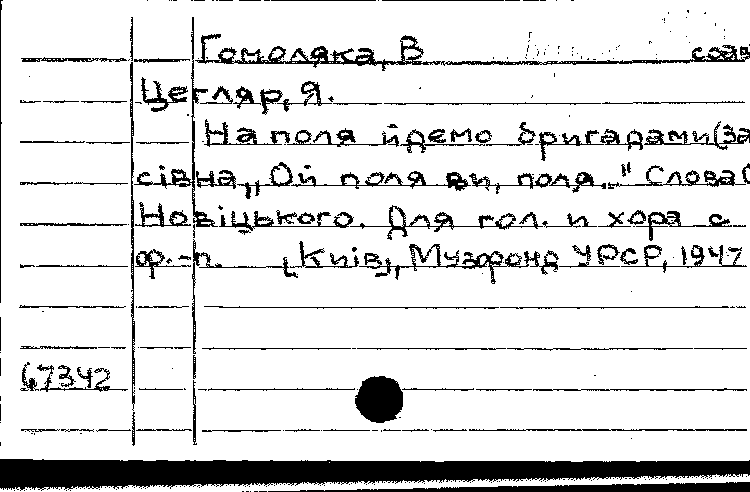 Гомоляка, В соав
Цегляр, Я.
На поля йдемо бригадами (За
сівна „Ой поля ви, поля..." Слова О
Новіцького. Для гол. и хора с
ф.-п. [Київ], Музфонд УРСР, 1947
67342